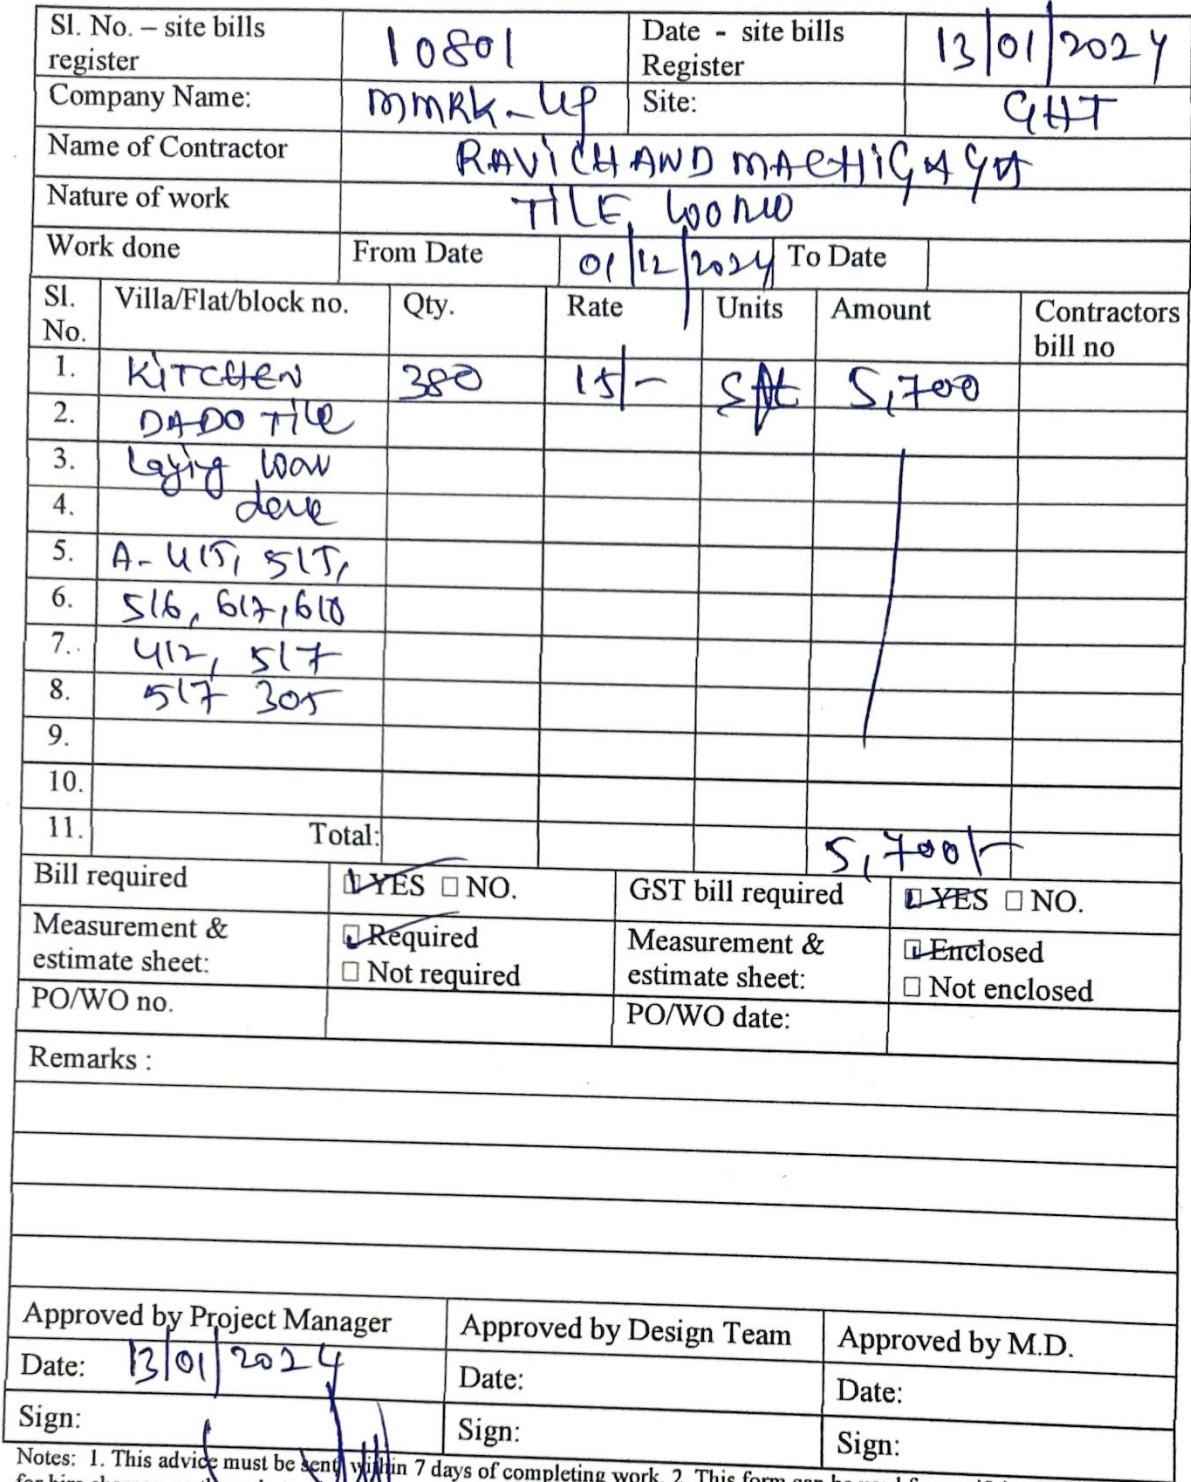 Sl. No. – site bills register 10801 Date - site bills Register 13/01/2024
Company Name: MMRK-UP Site: GHT
Name of Contractor RAVICHAND
Nature of work TILE
Work done From Date 01/12/2024 To Date
Sl. No. Villa/Flat/block no. Qty. Rate Units Amount Contractors bill no
1. KITCHEN 380 15/- Sft 5,700
2. DADO TILE
3. Laying
4. done
5. A- 415, 515,
6. 516, 617, 618
7. 412, 517
8. 517 305
9.
10.
11. Total: 5,700/-
Bill required YES NO. GST bill required YES NO.
Measurement & estimate sheet: Required Not required Measurement & estimate sheet: Enclosed Not enclosed
PO/WO no. PO/WO date:
Remarks :
Approved by Project Manager Approved by Design Team Approved by M.D.
Date: 13/01/2024 Date: Date:
Sign: Sign: Sign:
Notes: 1. This advice must be sent within 7 days of completing work. 2. This form can be